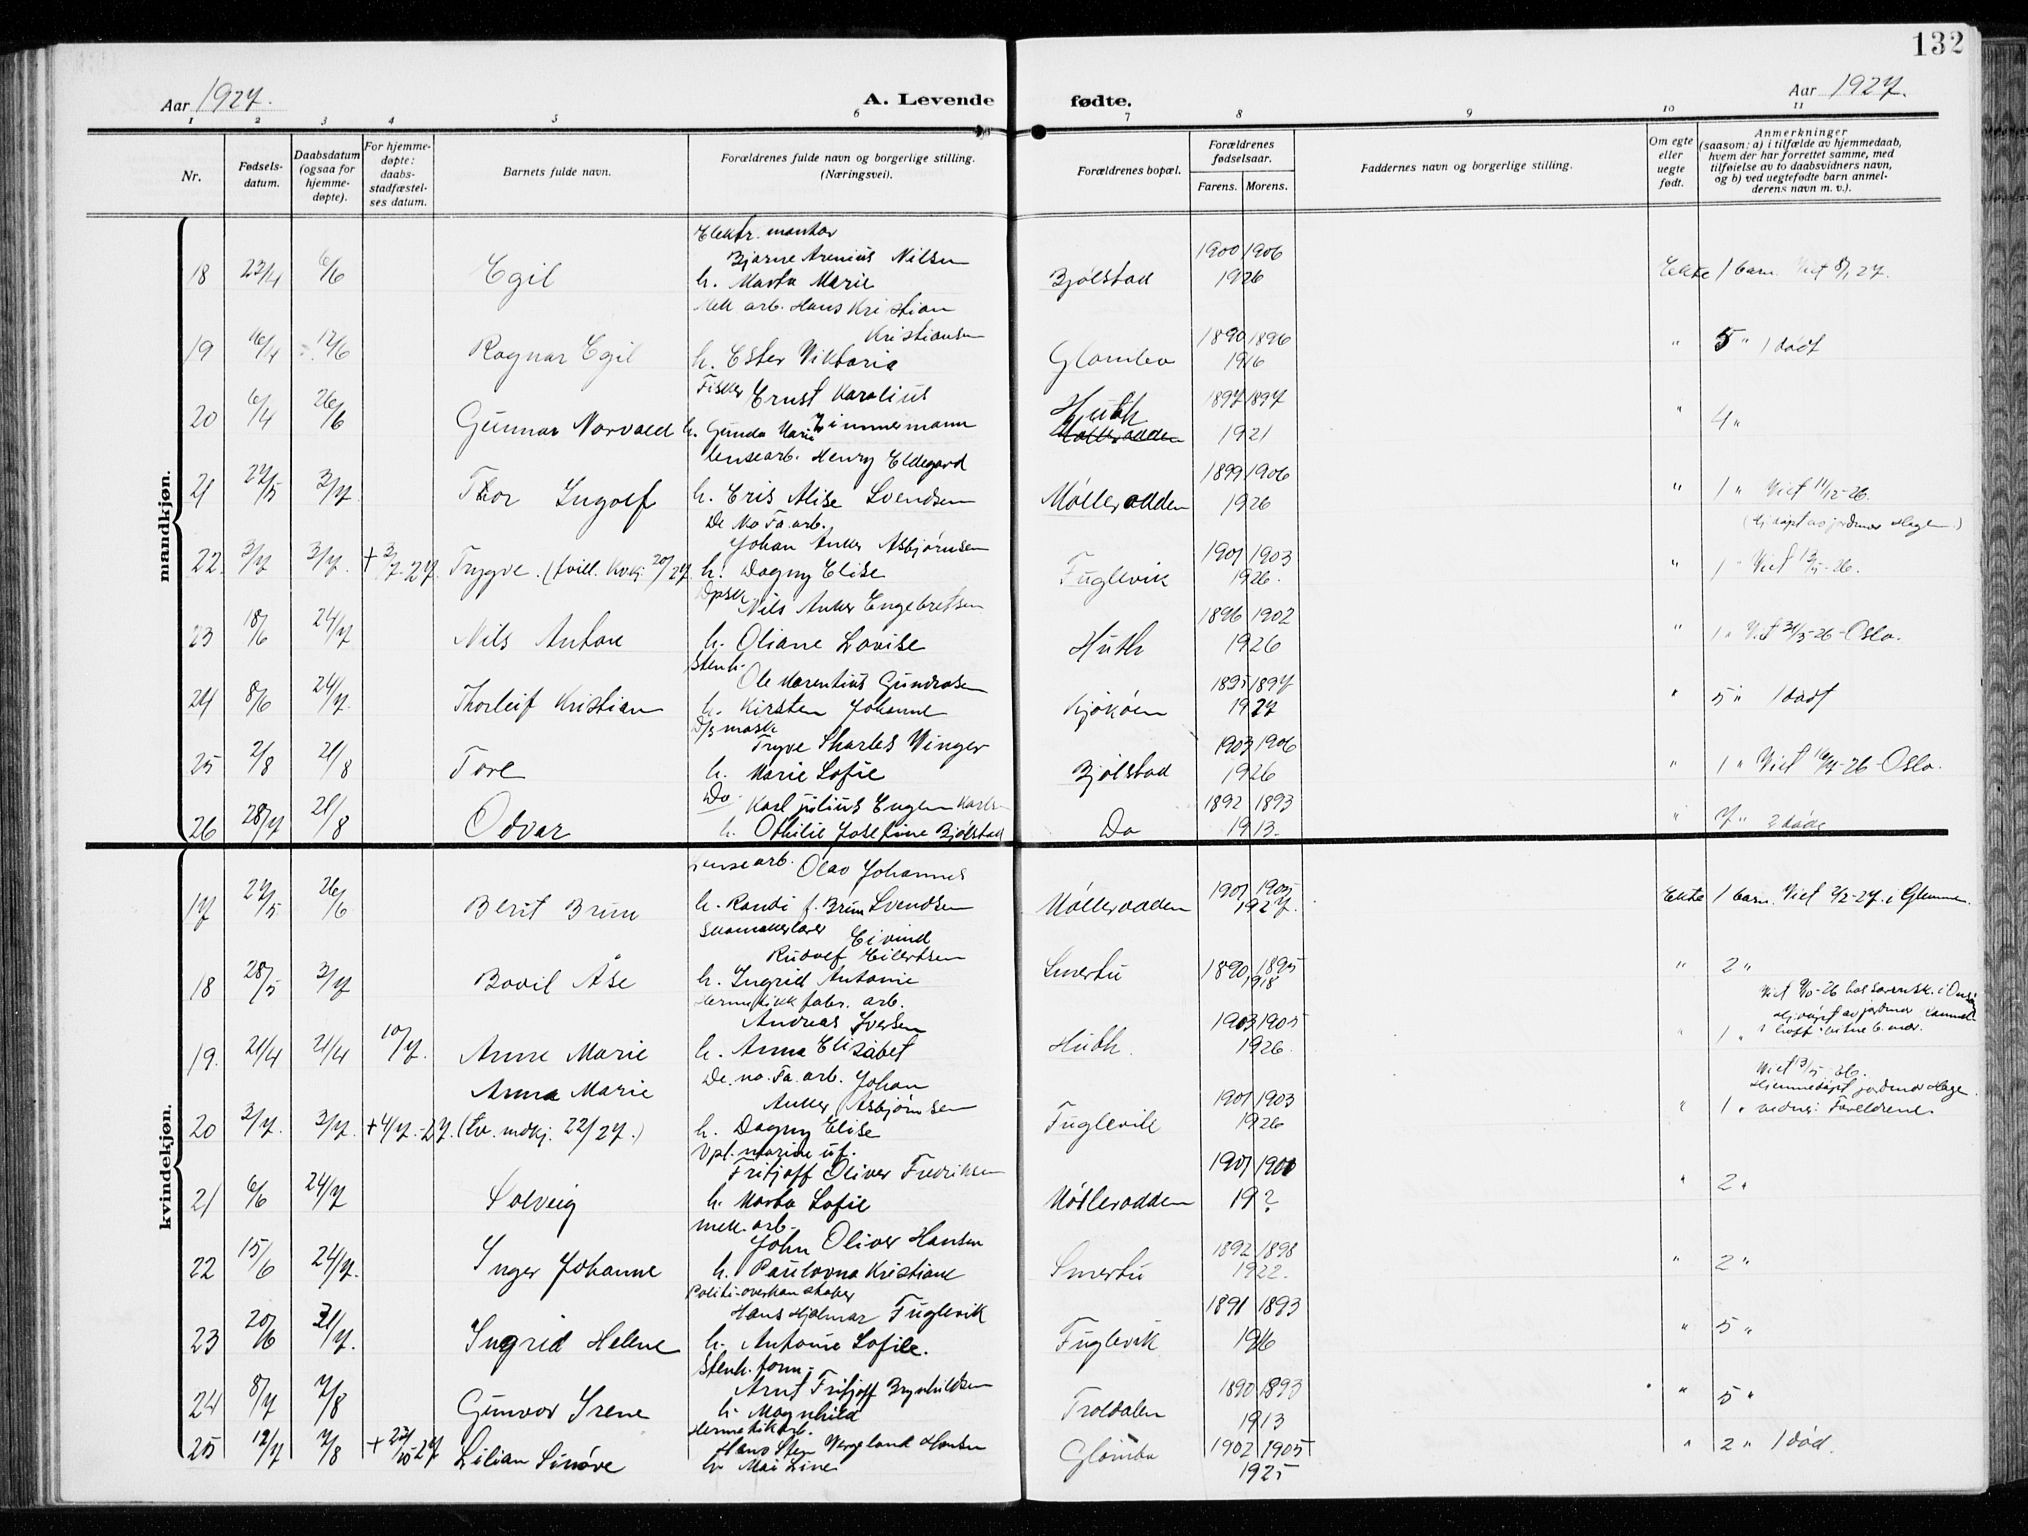 132
Aar 1927.
A. Levende fødte.
Aar 1927.
1 2 3 4 5 6 7 8 9 10 11
Nr.
Fødsels-
datum.
Daabsdatum
(ogsaa for
hjemme-
døpte).
For hjemme-
døpte:
daabs-
stadfæstel-
ses datum.
Barnets fulde navn.
Forældrenes fulde navn og borgerlige stilling.
(Næringsvei).
Forældrenes bopæl.
Forældrenes
fødselsaar.
Farens. Morens.
Faddernes navn og borgerlige stilling.
Om egte
eller
uegte
født.
Anmerkninger
(saasom: a) i tilfælde av hjemmedaab,
hvem der har forrettet samme, med
tilføielse av to daabsvidners navn,
og b) ved uegtefødte barn anmel-
derens navn m. v.).
mandkjøn.
Elektr. montør
Bjarne Arenius Nilsen 1900 1906
18 23/4 6/6 Egil h. Marta Marie Bjølstad 1926 Ekte 1 barn. Viet 8/1 27.
Mek arb. Hans Kristian
Kristiansen 1890 1896
19 16/4 12/6 Ragnar Egil h. Ester Viktoria Glombo 1916 " 5 " 1 død
Fisker Ernst Karolius Huth 1897 1897
20 6/4 26/6 Gunnar Norvald h. Gunda Marie Zimmermann Møllerodden 1921 " 4 "
lensearb. Henry Eldegard 1899 1906
21 27/5 3/7. Thor Ingolf h. Eris Alise Svendsen Møllerodden 1926 " 1 " Viet 11/12-26.
De No Fa. arb. (Hj.døpt av jordmor Hagen.)
Johan Anker Asbjørnsen 1901 1903
22. 3/7 3/7. + 3/7-27. Trygve. (tvill. kvkj. 20/27. h. Dagny Elise Fuglevik 1926. " 1 " Viet 13/5-26.
Dpsk
Nils Anker Engebretsen 1896 1902
23 18/6 24/7 Nils Anton h. Oliane Lovise Huth 1926 " 1 " Viet 31/5-26-Oslo.
Stenh.
Ole Marentius Gundersen 1895 1897
24 8/6 24/7. Thorleif Kristian h. Kirsten Johanne Kjøkøen 1927 " 5 " 1 død
D/s mask
Tryve Sharles Winger 1903 1906
25 2/8 21/8 Tore h. Marie Sofie Bjølstad 1926 " 1 " Viet 16/7-26-Oslo.
Do. Karl Julius Eugen Karlsen 1892 1893
26 28/7 21/8 Odvar h. Othilie Josefine Bjølstad Do 1913. " 7 " 2 døde
kvindekjøn.
lensearb. Olav Johannes
17 27/5 26/6 Berit Brun h. Randi f. Brun Svendsen Møllerodden 1901 1905 1927. Ekte 1 barn. Viet 2/2-27. i Glemmen.
Skomakerlærer Eivind
Rudolf Eilertsen
18 28/5 3/7 Bodil Åse h. Ingrid Antonie Smertu 1890 1895 1918 " 2 "
Hermetikk fabr. arb.
Andreas Iversen 1903 1905
19. 21/4 21/4 10/7. Anne Marie h. Anna Elisabet Huth. 1926. " 1 "
De. no. Fa. arb. Johan Viet 13/5 26.
Anna Marie Anker Asbjørnsen 1901 1903 Hjemmedøpt jordmor Hage.
20 3/7. 3/7. +4/7.-27. (tv. mdkj. 22/27.) h. Dagny Elise Fuglevik 1926 " 1 " vidner: Foreldrene.
Vpl. marine uf.
Fritjoff Oliver Fredriksen 1901 1901
21 6/6 24/7 Solveig h. Marta Sofie Møllerodden 19? " 2 "
mek. arb.
John Oliver Hansen 1892 1898
22 15/6 24/7. Inger Johanne h. Paulovna Kristiane Smertu 1922. " 2 "
Politi-overkonstabel
Hans Hjalmar Fuglevik 1891 1893
23 20/6 31/7. Ingrid Helene h. Antonie Sofie. Fuglevik 1916 " 5 "
Stenh. form.
Arnt Fritjoff Brynhildsen 1890 1893
24 8/7 7/8 Gunvor Irene h. Magnhild Troldalen 1913 " 5 "
Hermetikarb.
25 12/7 7/8 + 23/10 27 Lilian Sinøve Hans Sten Vergeland Hansen Glombo 1902 1905 " 2 " 1 død.
h. Mai Line 1925